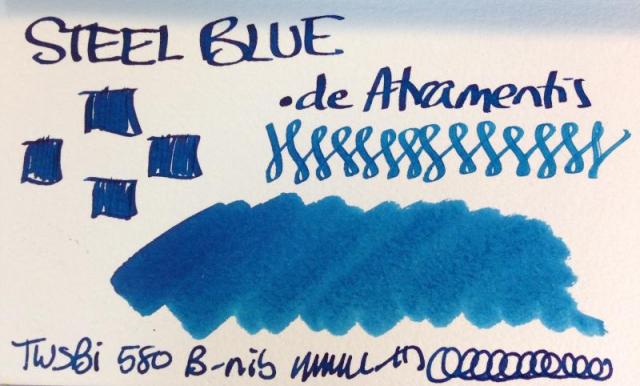 STEEL BLUE
•de Atramentis
TWSBi 580 B-nib